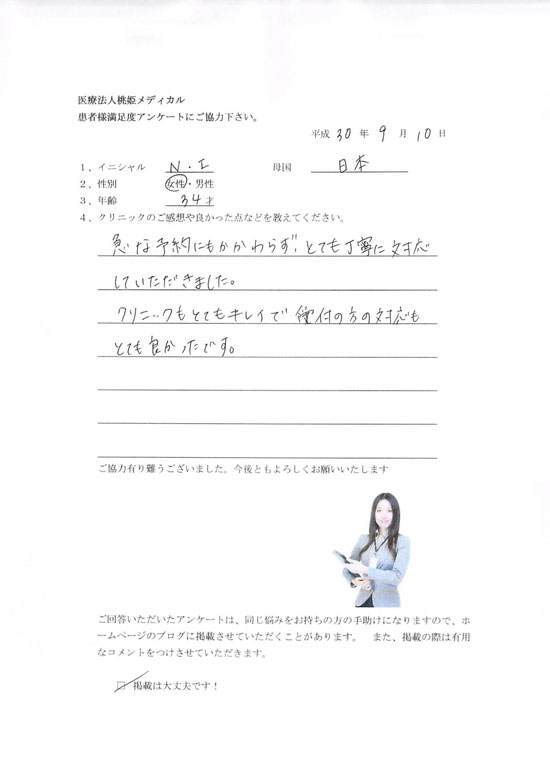 医療法人桃姫メディカル
患者様満足度アンケートにご協力下さい。
平成 30 年 9 月 10 日
1、イニシャル N・I 母国 日本
2、性別 女性・男性
3、年齢 34才
4、クリニックのご感想や良かった点などを教えてください。
急な予約にもかかわらず、とても丁寧に対応
していただきました。
クリニックもとてもキレイで受付の方の対応も
とても良かったです。
ご協力有り難うございました。今後ともよろしくお願いいたします
ご回答いただいたアンケートは、同じ悩みをお持ちの方の手助けになりますので、ホ
ームページのブログに掲載させていただくことがあります。 また、掲載の際は有用
なコメントをつけさせていただきます。
□ 掲載は大丈夫です！